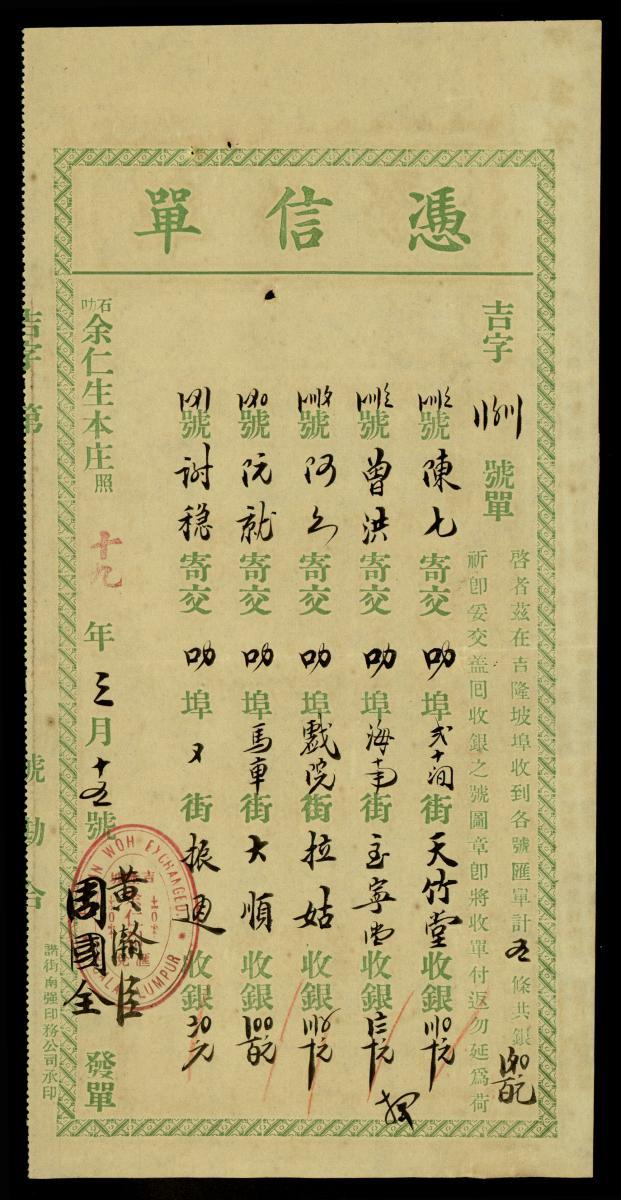 憑信單
吉字 號單
啓者茲在吉隆坡埠收到各號匯單計五條共銀
祈即妥交蓋囘收銀之號圖章即將收單付返勿延爲荷
號陳七寄交叻埠弍十间街天竹堂收銀
號曾洪寄交叻埠海南街 收銀
號阿 寄交叻埠戲院街拉姑收銀
號阮就寄交叻埠馬車街大順收銀
號謝穩寄交叻埠又街振通收銀
石叻余仁生本庄照
十九年三月十五號
黃瀚臣
周國全
發單
諧街南強印務公司承印
吉字第 號勘合
WOH EXCHANGED
LUMPUR